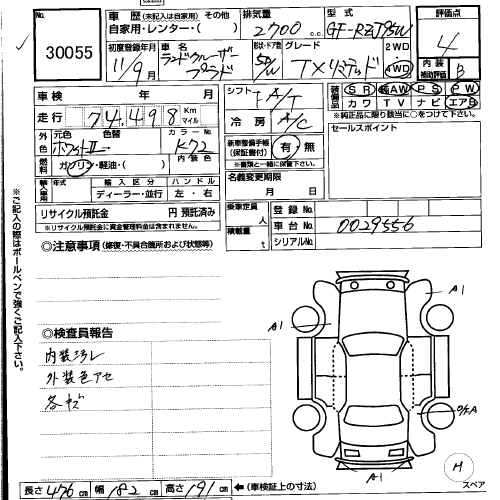 No. 30055
車歴 (未記入は自家用) その他
自家用・レンター・( )
排気量 2700 c.c.
型式 GF-RZJ95W
評価点 4
初度登録年月 11/9月
車名 ランドクルーザー プラド
形状・ドア数 5D/W
グレード TXリミテッド
2WD 4WD
内装 補助評価 B
車検 年 月
走行 74,498 Km マイル
シフト FA/T
冷房 A/C
装備品 SR AW PS PW
カワ TV ナビ エアB
※純正品に限り該当に○をつけて下さい。
外色 元色 ホワイトII 色替
カラー No. K72
内装色
燃料 ガソリン・軽油・( )
新車整備手帳 (保証書付) 有・無
※書類と一緒に保管下さい。
セールスポイント
輸入車用 年式 輸入区分 ディーラー・並行 ハンドル 左・右
名義変更期限 月 日
リサイクル預託金 円 預託済み
※リサイクル預託金に資金管理料金は含まれません。
乗車定員 人
積載量 t
登録 No.
車台 No. 0029556
シリアルNo.
◎注意事項 (修復・不具合箇所および状態等)
◎検査員報告
内装汚レ
外装色アセ
各キズ
A1
A1
A1
H
スペア
長さ 476 cm 幅 182 cm 高さ 191 cm ←(車検証上の寸法)
※ご記入の際はボールペンで強くご記入下さい。